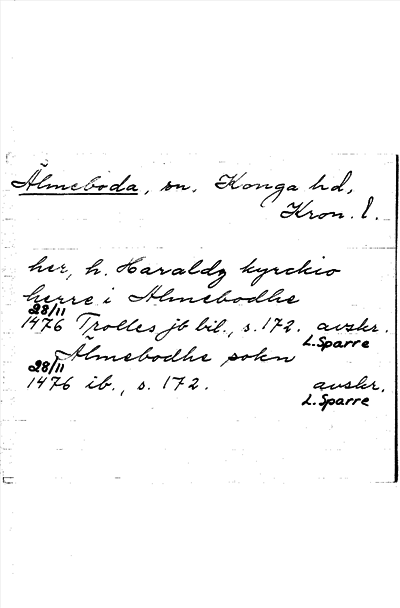 Älmeboda, sn. Konga hd,
Kron. l.
her, h. Haraldz kyrckio
herre i Älmebodhe
28/11
1476 Trolles jb bil., s. 172. avskr.
L. Sparre
Älmebodhe sokn
28/11
1476 ib., s. 172. avskr.
L. Sparre